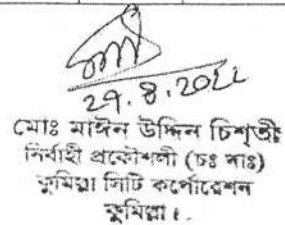 29.8.2022
মোঃ মাঈন উদ্দিন চিশ্‌তী
নির্বাহী প্রকৌশলী (চঃ দাঃ)
কুমিল্লা সিটি কর্পোরেশন
কুমিল্লা।